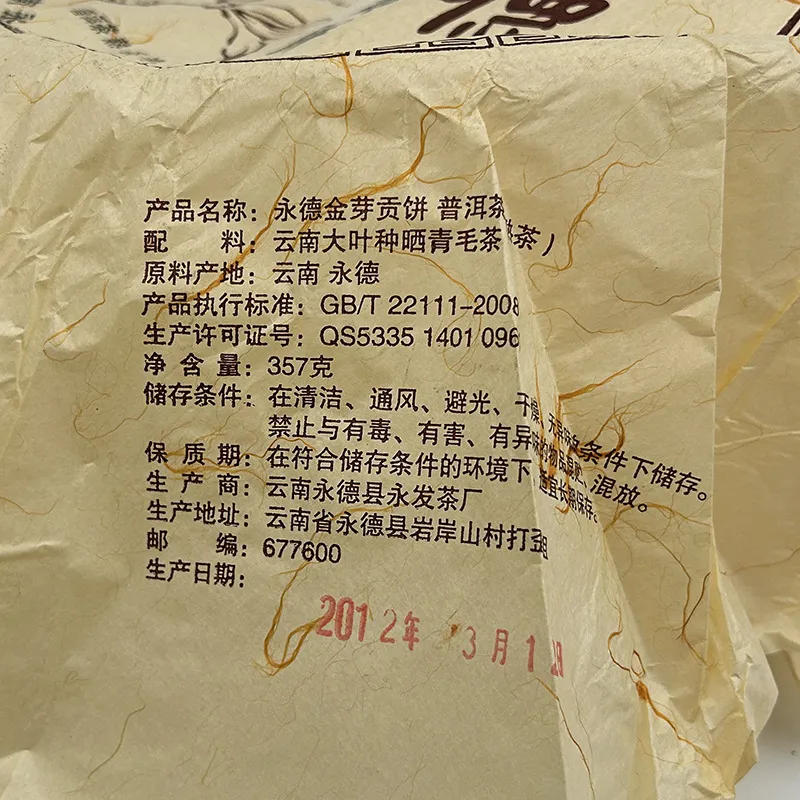 德
产品名称：永德金芽贡饼 普洱茶
配 料：云南大叶种晒青毛茶 茶）
原料产地：云南 永德
产品执行标准：GB/T 22111-2008
生产许可证号：QS5335 1401 096
净 含 量：357克
储存条件：在清洁、通风、避光、干燥、无异味条件下储存。
禁止与有毒、有害、有异味的物品 混放。
保 质 期：在符合储存条件的环境下，适宜长期保存。
生 产 商：云南永德县永发茶厂
生产地址：云南省永德县岩岸山村打歪
邮 编：677600
生产日期：
2012年 3月1